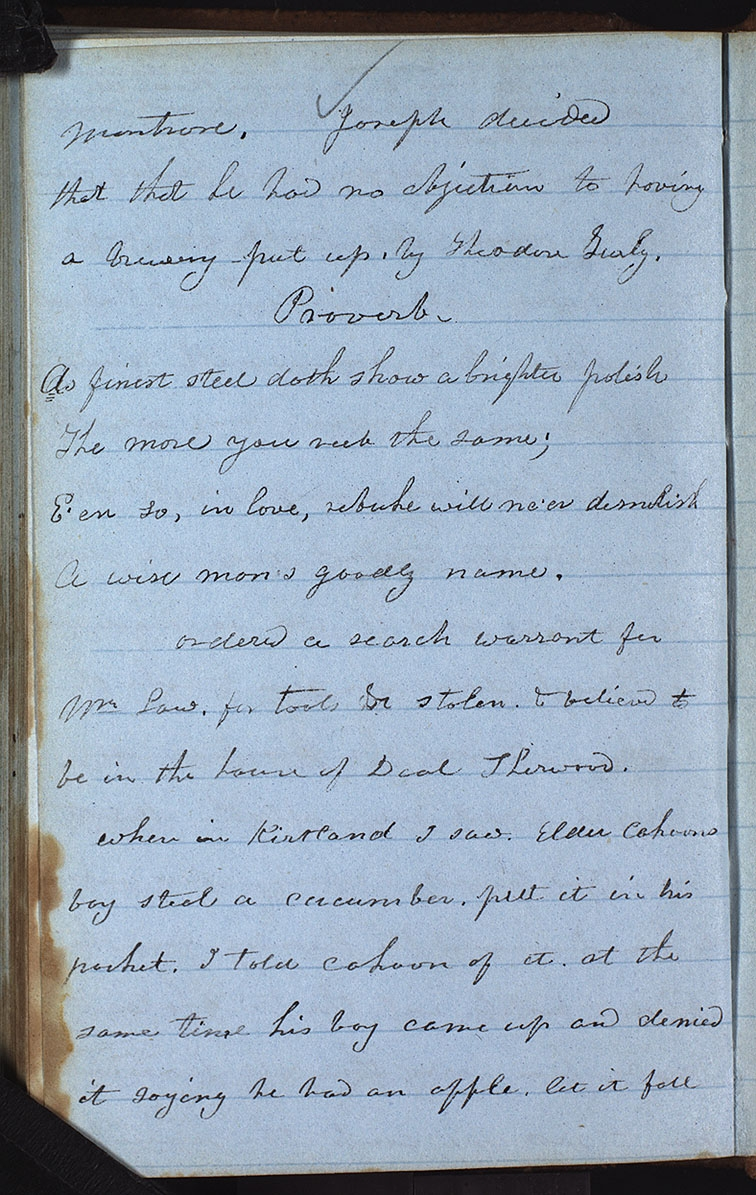 Montrose. Joseph decided
that that he had no objection to having
a brewery put up. by Theodore Turly.
Proverb.
As finest steel doth show a brighter polish
The more you rub the same;
E'en so, in love, rebuke will ne'er demolish
A wise man's goodly name.
ordered a search warrant for
Mr Law. for tools &c stolen. & believed to
be in the house of Dcol Sherwood.
when in Kirtland I saw. Elder Cahoons
boy steal a cucumber. put it in his
pocket. I told cahoon of it. at the
same time his boy came up and denied
it saying he had an apple. let it fall